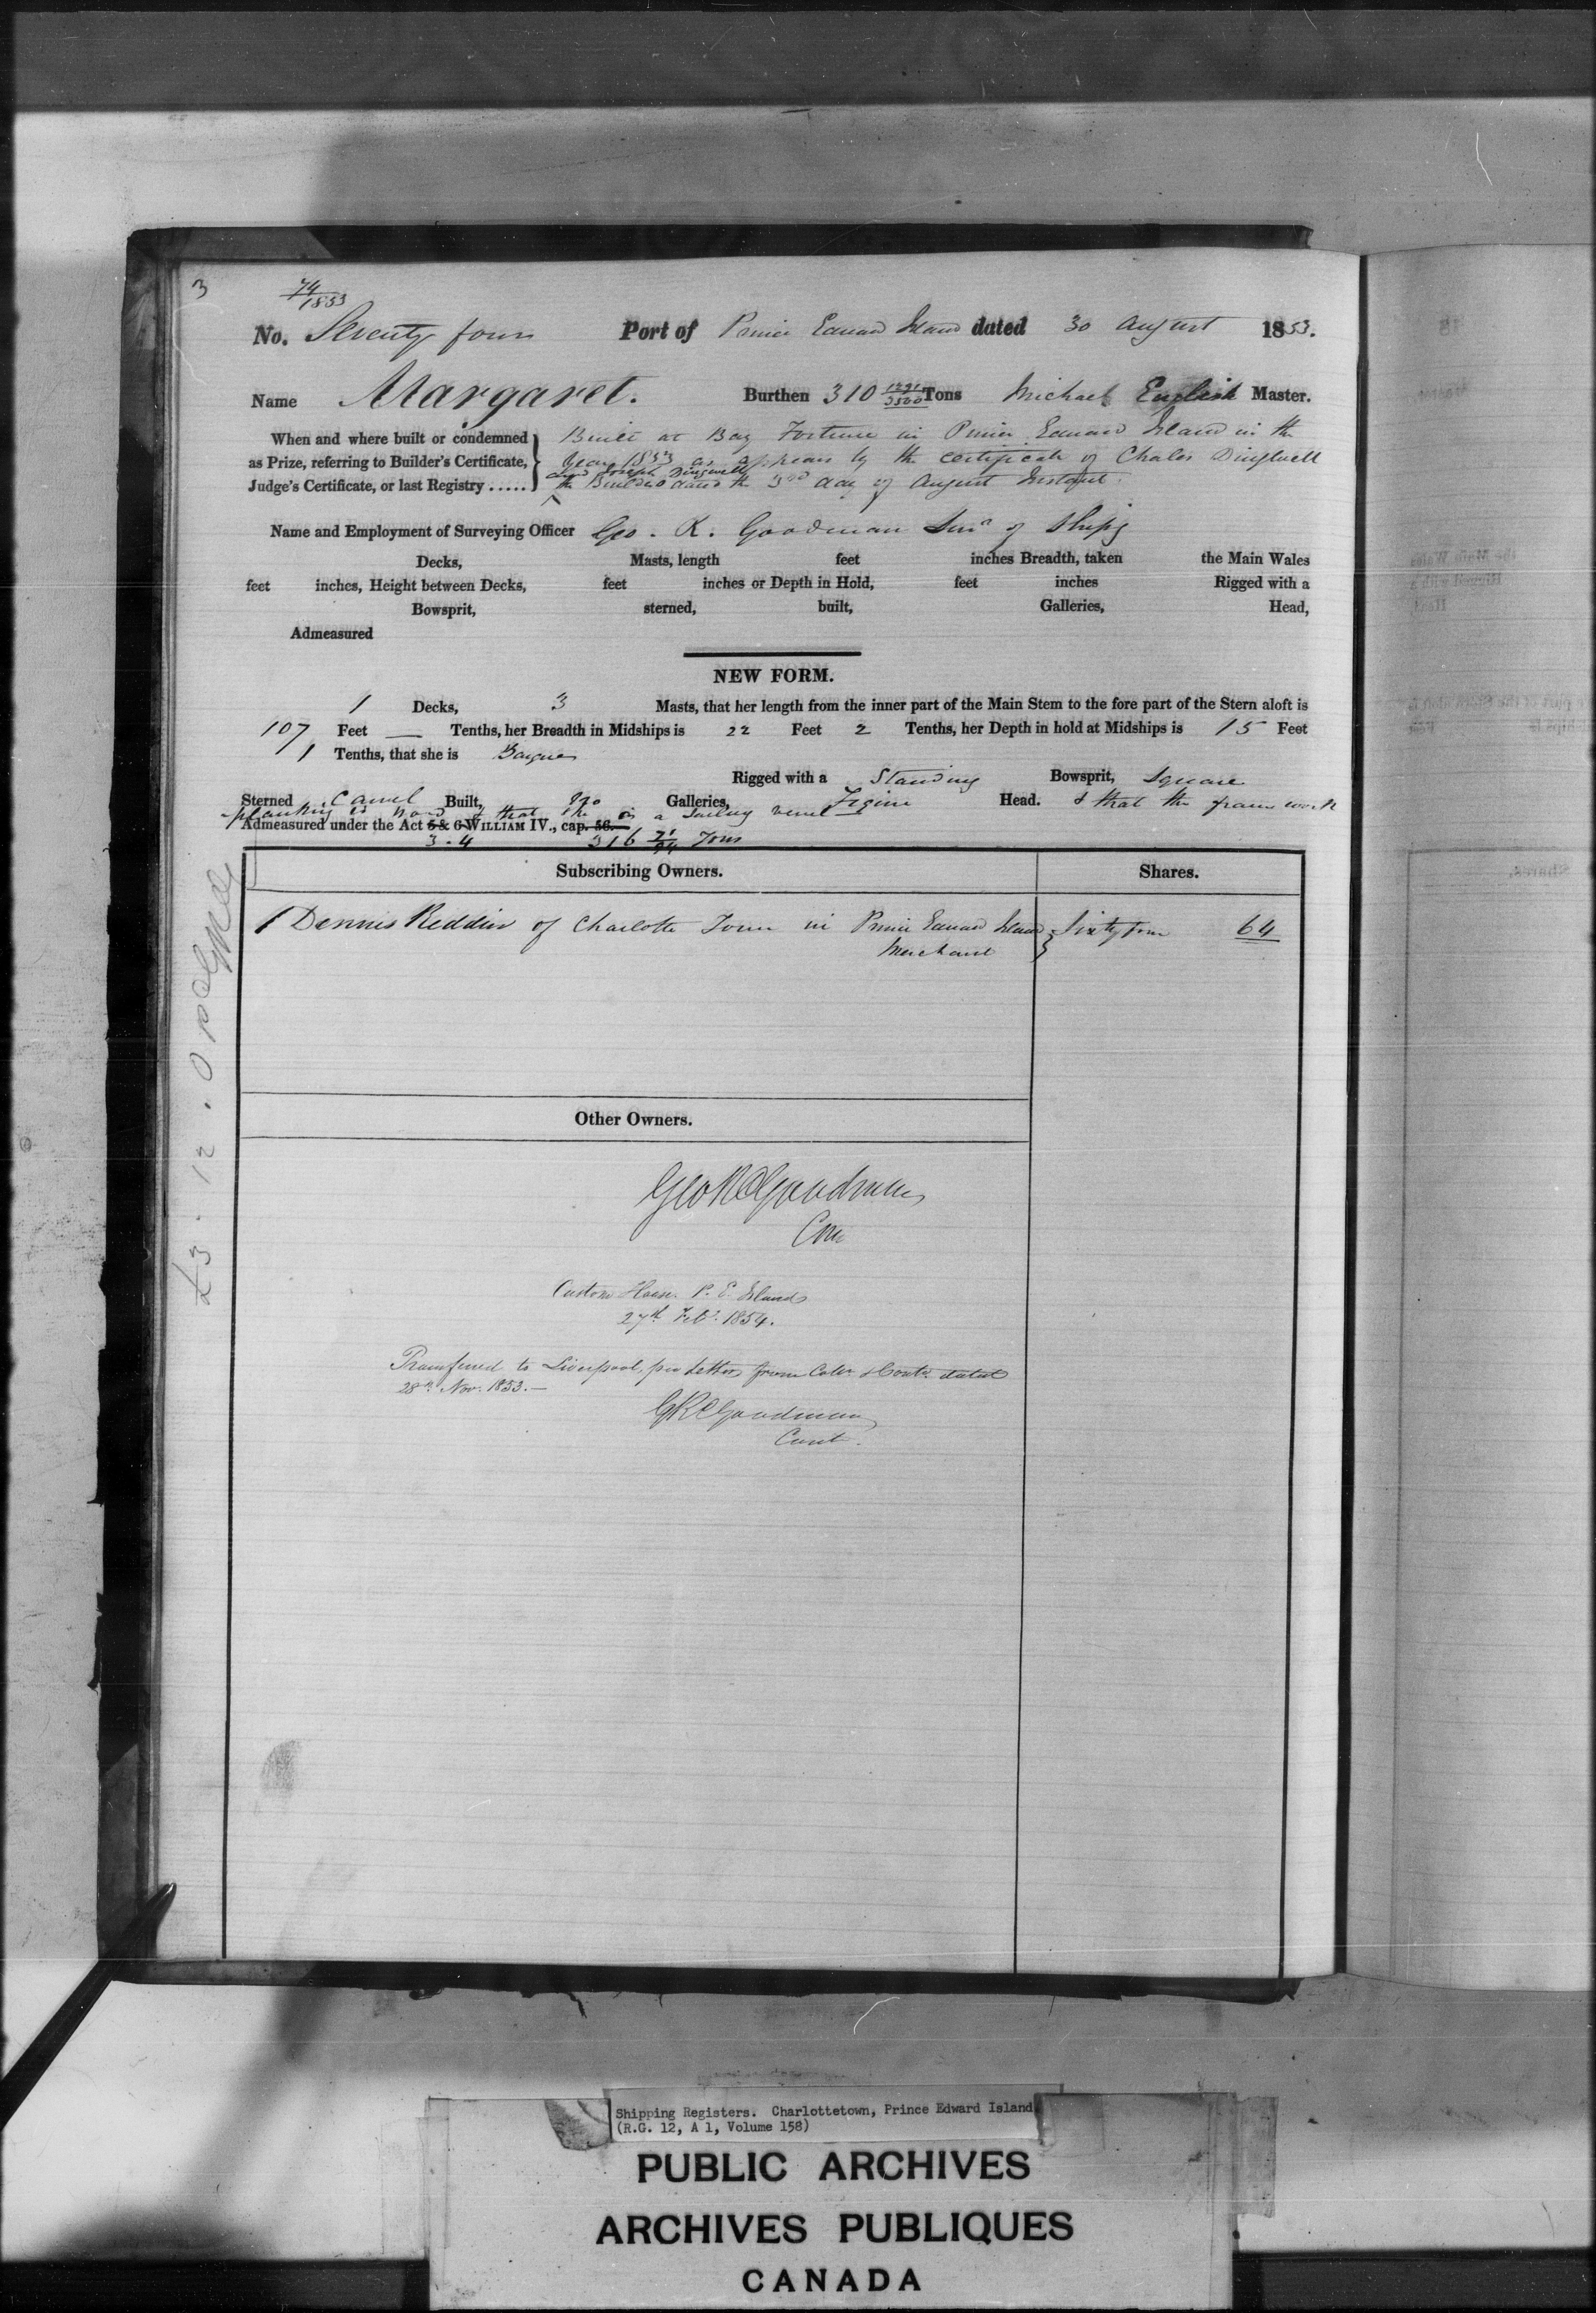 3
74/1853
No. Seventy four Port of Prince Edward Island dated 30 August 1853.
Name Margaret. Burthen 310 1291/3500 Tons Michael English Master.
When and where built or condemned Built at Bay Fortune in Prince Edward Island in the
as Prize, referring to Builder's Certificate, Year 1853 as appears by the Certificate of Chales Dingwell
and Joseph Dingwell
Judge's Certificate, or last Registry ..... the Builders dated the 3rd day of August Instant.
Name and Employment of Surveying Officer Geo. R. Goodman Survr of Shipg
Decks, Masts, length feet inches Breadth, taken the Main Wales
feet inches, Height between Decks, feet inches or Depth in Hold, feet inches Rigged with a
Bowsprit, sterned, built, Galleries, Head,
Admeasured
NEW FORM.
1 Decks, 3 Masts, that her length from the inner part of the Main Stem to the fore part of the Stern aloft is
107 Feet — Tenths, her Breadth in Midships is 22 Feet 2 Tenths, her Depth in hold at Midships is 15 Feet
1 Tenths, that she is Barque
Rigged with a Standing Bowsprit, Square
Sterned Carvel Built, No Galleries, Figure Head. & that the frame work
planking is wood & that she is a Sailing vessel
Admeasured under the Act 5 & 6 WILLIAM IV., cap. 56.
3 . 4 316 71/94 Tons
Subscribing Owners. Shares.
1 Dennis Reddin of Charlotte Town in Prince Edward Island Sixty four 64
Merchant
Other Owners.
Geo R Goodman
Con
Custom House. P. E. Island
27th Feby. 1854.
Transferred to Liverpool, per Letter from Collr & Contr. dated
28th Nov. 1853. —
GR Goodman
Cont.
£3 . 12 . 0
Shipping Registers. Charlottetown, Prince Edward Island
(R.G. 12, A 1, Volume 158)
PUBLIC ARCHIVES
ARCHIVES PUBLIQUES
CANADA